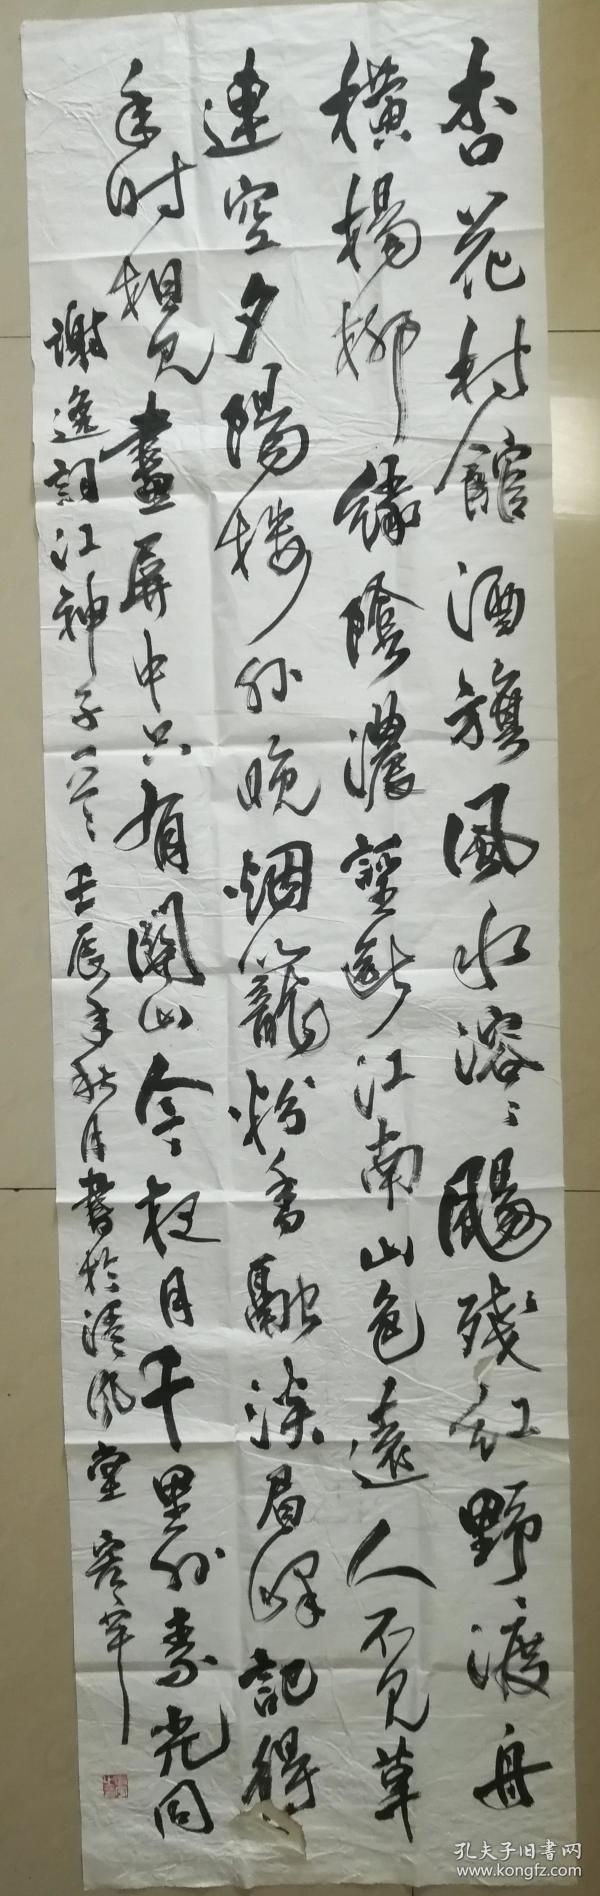 杏花村館酒旗風水溶〻颺殘紅野渡舟
橫楊柳綠陰濃望斷江南山色遠人不見草
連空夕陽樓外晚烟籠粉香融淡眉峰記得
年時相見畫屏中只有關山今夜月千里外素光同
謝逸詞江神子一首壬辰年秋月書於清風堂
孔夫子旧书网
www.kongfz.com